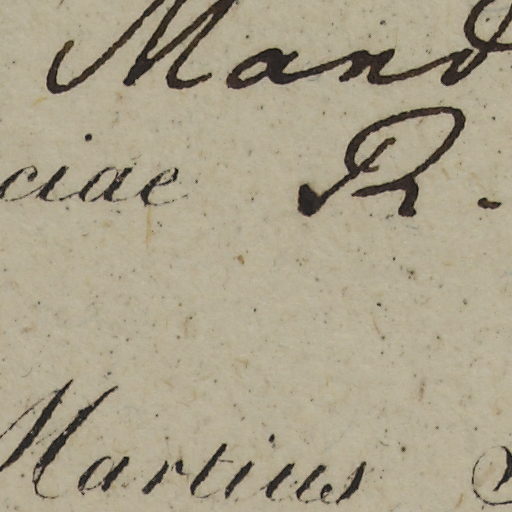 Mand
ciae R.
Martius